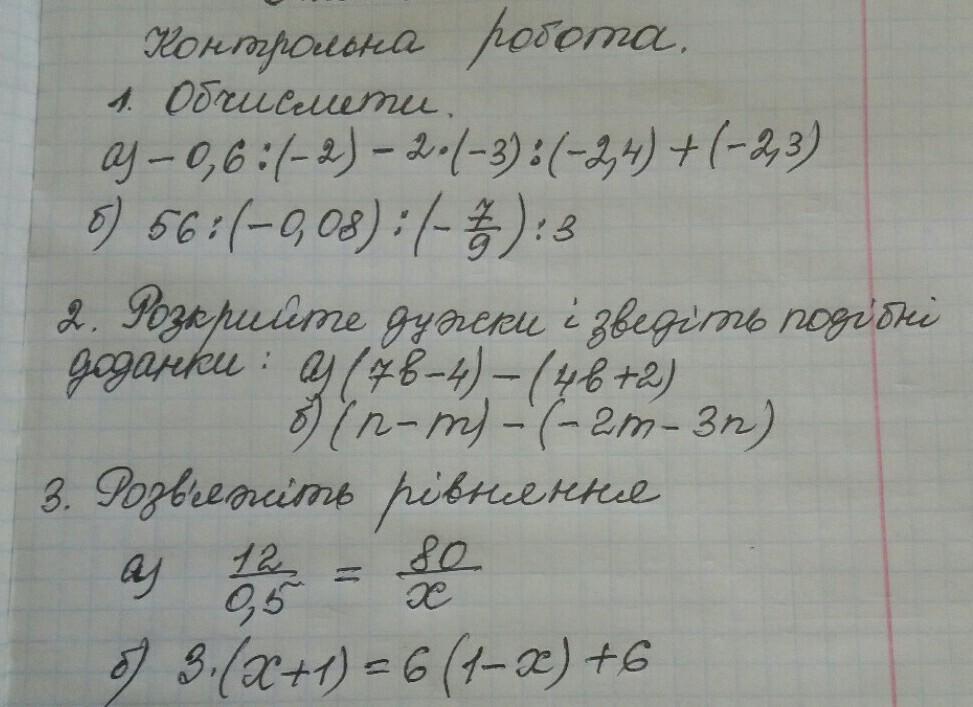 Контрольна робота.
1. Обчислити.
а) – 0,6 : (–2) – 2·(–3) : (–2,4) + (–2,3)
б) 56 : (–0,08) : (–7/9) : 3
2. Розкрийте дужки і зведіть подібні
доданки: а) (7b–4) – (4b+2)
б) (n–m) – (–2m–3n)
3. Розв'яжіть рівняння
а) 12/0,5 = 80/x
б) 3·(x+1) = 6(1–x)+6